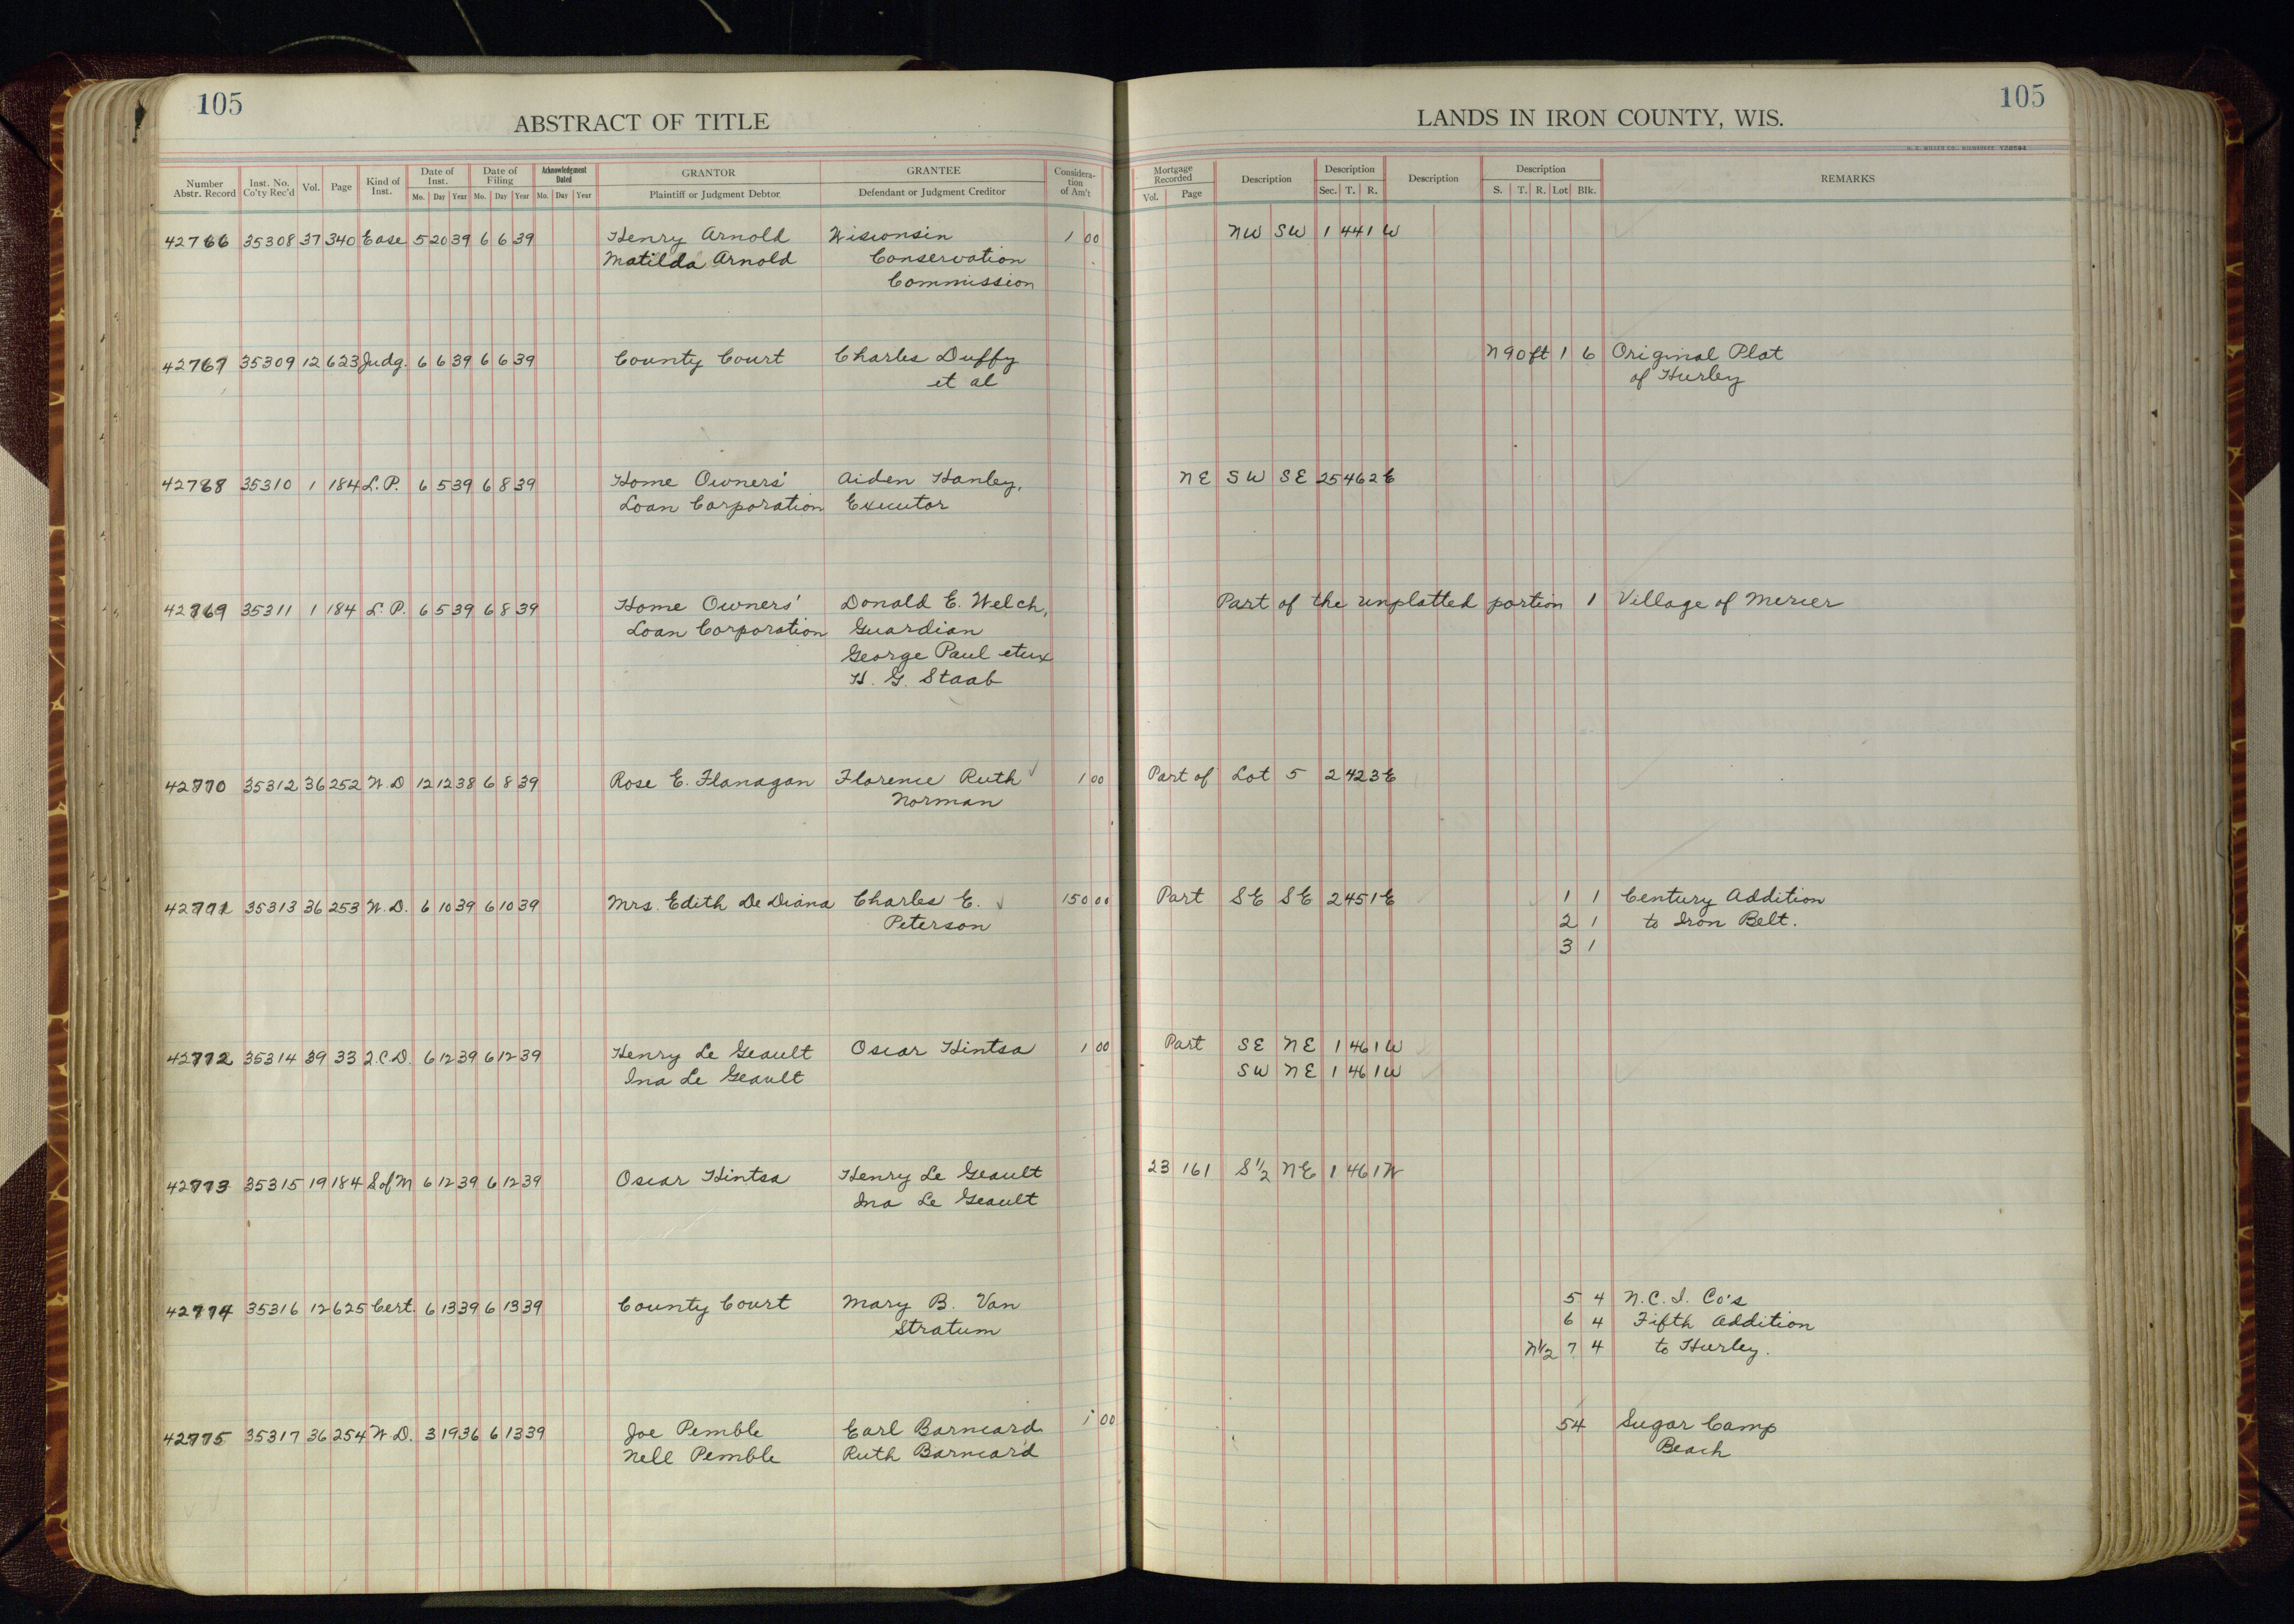 105
ABSTRACT OF TITLE
Number Abstr. Record Inst. No. Co'ty Rec'd Vol. Page Kind of Inst. Date of Inst. Mo. Day Year Date of Filing Mo. Day Year Acknowledgment Dated Mo. Day Year GRANTOR Plaintiff or Judgment Debtor GRANTEE Defendant or Judgment Creditor Considera-tion of Am't
42766 35308 37 340 Ease 5 20 39 6 6 39 Henry Arnold Wisconsin 1 00
Matilda Arnold Conservation
Commission
42767 35309 12 623 Judg. 6 6 39 6 6 39 County Court Charles Duffy
et al
42768 35310 1 184 L.P. 6 5 39 6 8 39 Home Owners' Aiden Hanley,
Loan Corporation Executor
42769 35311 1 184 L.P. 6 5 39 6 8 39 Home Owners' Donald E. Welch,
Loan Corporation Guardian
George Paul etux
H. G. Staab
42770 35312 36 252 W.D 12 12 38 6 8 39 Rose E. Flanagan Florence Ruth 1 00
Norman
42771 35313 36 253 W.D. 6 10 39 6 10 39 Mrs. Edith De Diana Charles E. 150 00
Peterson
42772 35314 39 33 Q.C.D. 6 12 39 6 12 39 Henry Le Geault Oscar Hintsa 1 00
Ina Le Geault
42773 35315 19 184 S of M 6 12 39 6 12 39 Oscar Hintsa Henry Le Geault
Ina Le Geault
42774 35316 12 625 Cert. 6 13 39 6 13 39 County Court Mary B. Van
Stratum
42775 35317 36 254 W.D. 3 19 36 6 13 39 Joe Pemble Earl Barneard 1 00
Nell Pemble Ruth Barneard
105
LANDS IN IRON COUNTY, WIS.
Mortgage Recorded Vol. Page Description Description Sec. T. R. Description Description S. T. R. Lot Blk. REMARKS
NW SW 1 44 1 W
N 90 ft 1 6 Original Plat
of Hurley
NE SW SE 25 46 2 E
Part of the unplatted portion 1 Village of Mercer
Part of Lot 5 2 42 3 E
Part SE SE 2 45 1 E 1 1 Century Addition
2 1 to Iron Belt.
3 1
Part SE NE 1 46 1 W
SW NE 1 46 1 W
23 161 S½ NE 1 46 1 W
5 4 N.C.I. Co's
6 4 Fifth Addition
N½ 7 4 to Hurley.
54 Sugar Camp
Beach